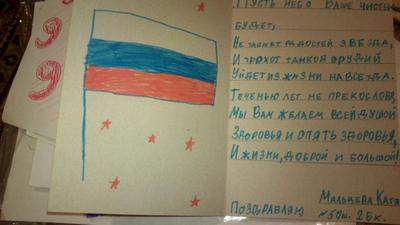 9
9
Пусть небо Ваше чистым
будет,
Не гаснет радостей звезда,
И грохот танков орудий
Уйдет из жизни навсегда.
Теченью лет не прекословя,
Мы Вам желаем всей душой
Здоровья и опять здоровья,
И жизни, доброй и большой!
Мальцева Катя
Поздравляю
2 Б к.